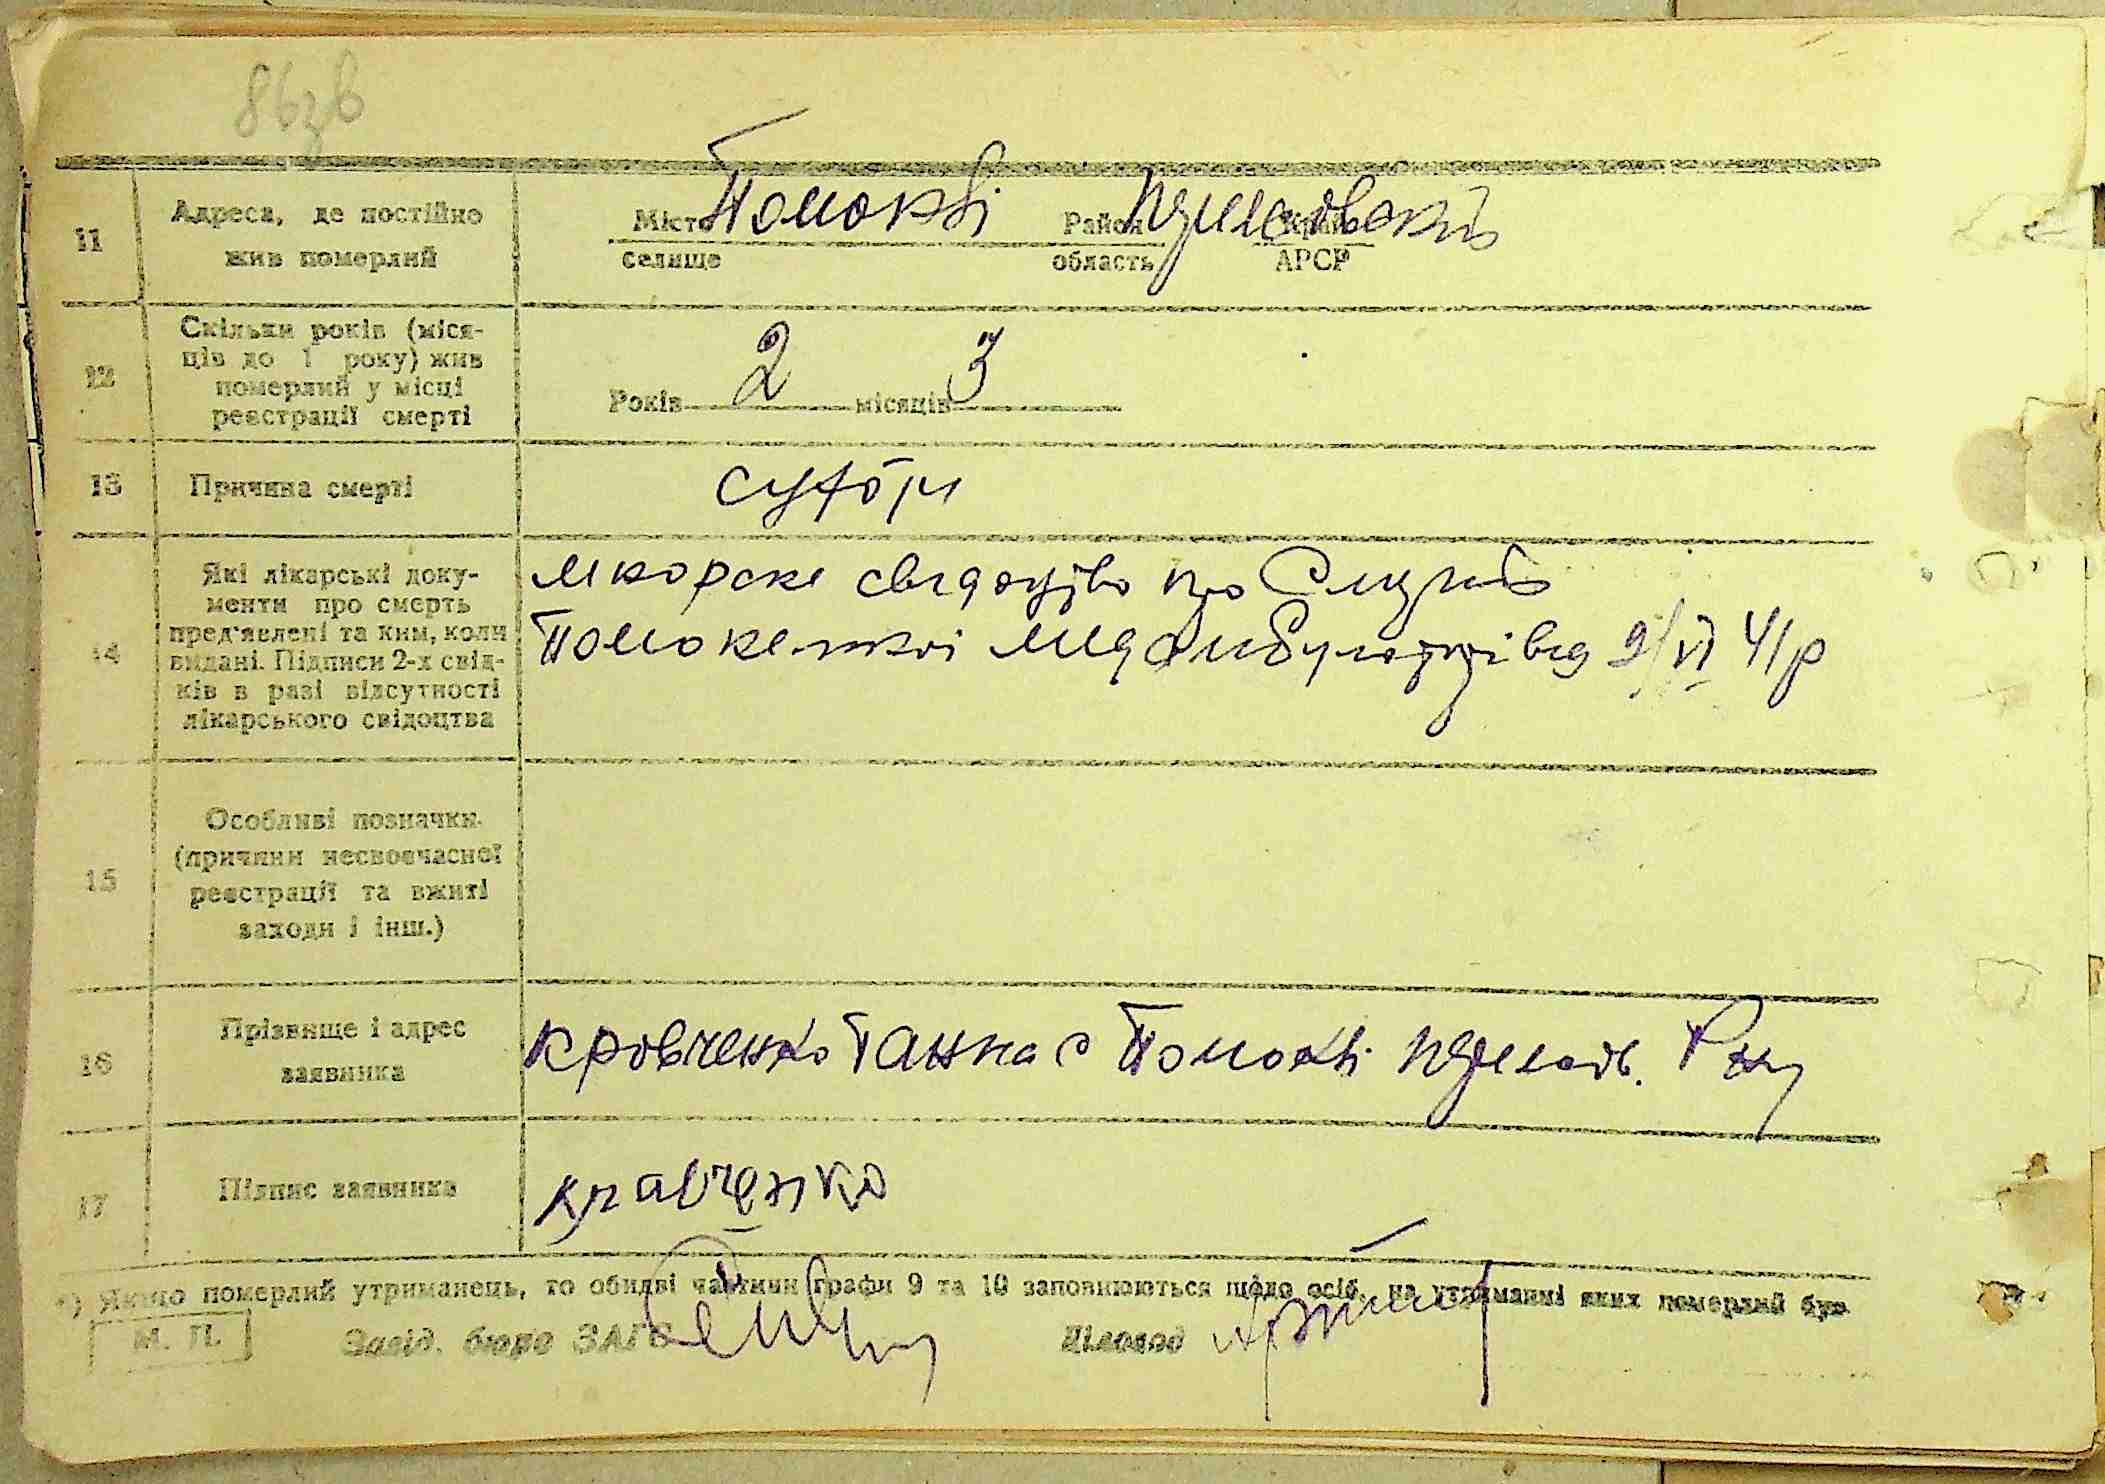 86зв
11
Адреса, де постійно
жив померлий
Місто Помоклі Район
селище область АРСР
12
Скільки років (міся-
ців до 1 року) жив
померлий у місці
реєстрації смерті
Років 2 місяців 3
13
Причина смерті
14
Які лікарські доку-
менти про смерть
пред'явлені та ким, коли
видані. Підписи 2-х свід-
ків в разі відсутності
лікарського свідоцтва
про Смерть
від 9/VI 41р
15
Особливі позначки
(причини несвоєчасної
реєстрації та вжиті
заходи і інш.)
16
Прізвище і адрес
заявника
Кровченко Ганна с Помоклі
17
Підпис заявника
кравченко
*) Якщо померлий утриманець, то обидві частини графи 9 та 10 заповнюються щодо осіб, на утриманні яких померлий був
М. П.
Завід. бюро ЗАГС
Діловод